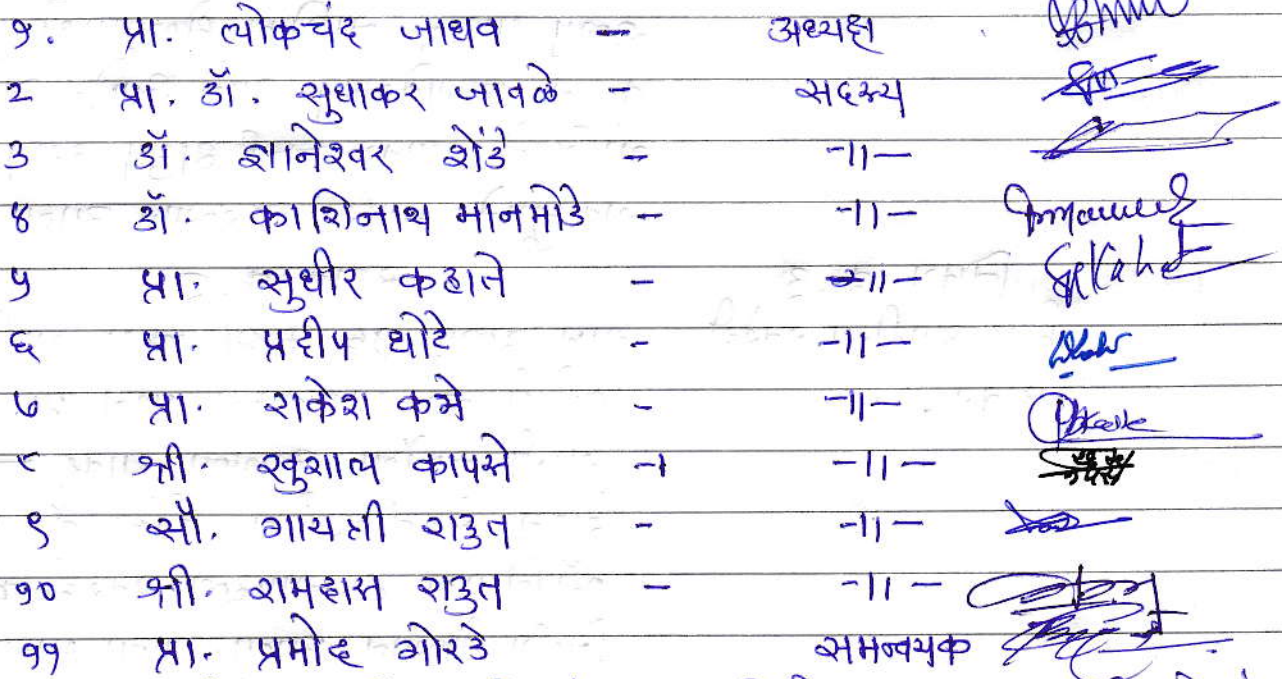 १. प्रा. लोकचंद जाधव — अध्यक्ष
२ प्रा. डॉ. सुधाकर जावळे - सदस्य
३ डॉ. ज्ञानेश्वर शेंडे - -11-
४ डॉ. काशिनाथ मानमोडे - -11-
५ प्रा. सुधीर कहाते - -11-
६ प्रा. प्रदीप धोटे - -11-
७ प्रा. राकेश कभे - -11-
८ श्री. खुशाल कापसे - -11-
९ सौ. गायत्री राउत - -11-
१० श्री. रामदास राउत - -11-
११ प्रा. प्रमोद गोरडे समन्वयक